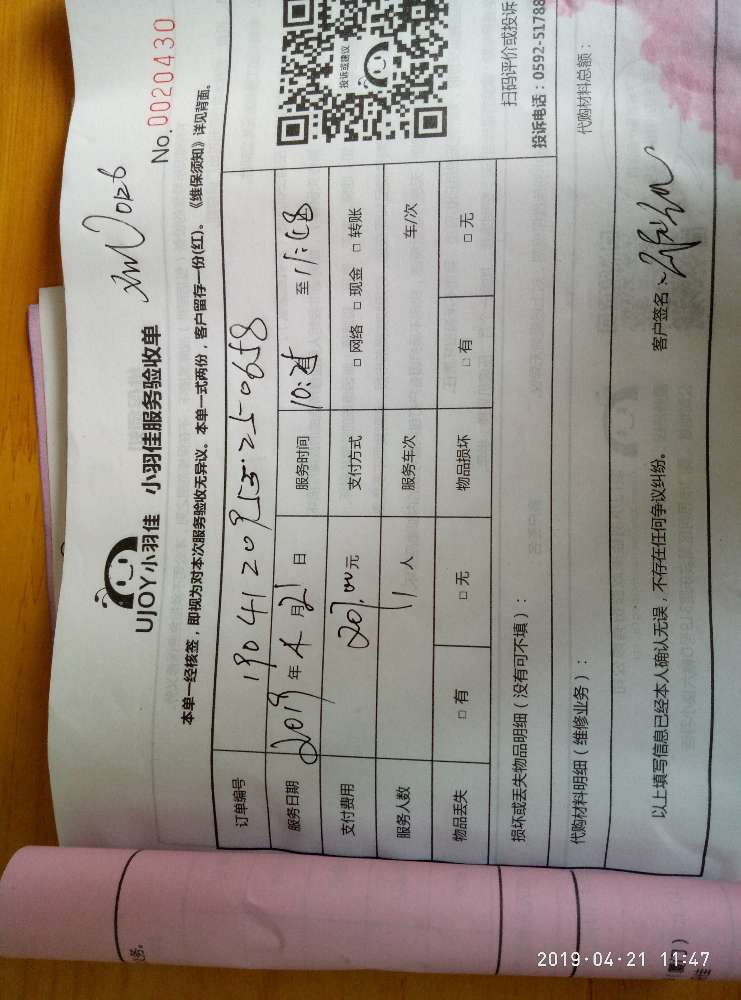 UJOY小羽佳 小羽佳服务验收单
No.0020430
本单一经核签，即视为对本次服务验收无异议。本单一式两份，客户留存一份(红)。《维保须知》详见背面。
订单编号
服务日期 2019年4月21日 服务时间 至
支付费用 207.00元 支付方式 □ 网络 □ 现金 □ 转账
服务人数 人 服务车次 车/次
物品丢失 □ 有 □ 无 物品损坏 □ 有 □ 无
投诉或建议
扫码评价或投诉
投诉电话：0592-51788
损坏或丢失物品明细（没有可不填）：
代购材料明细（维修业务）： 代购材料总额：
以上填写信息已经本人确认无误，不存在任何争议纠纷。 客户签名：
2019·04·21 11:47